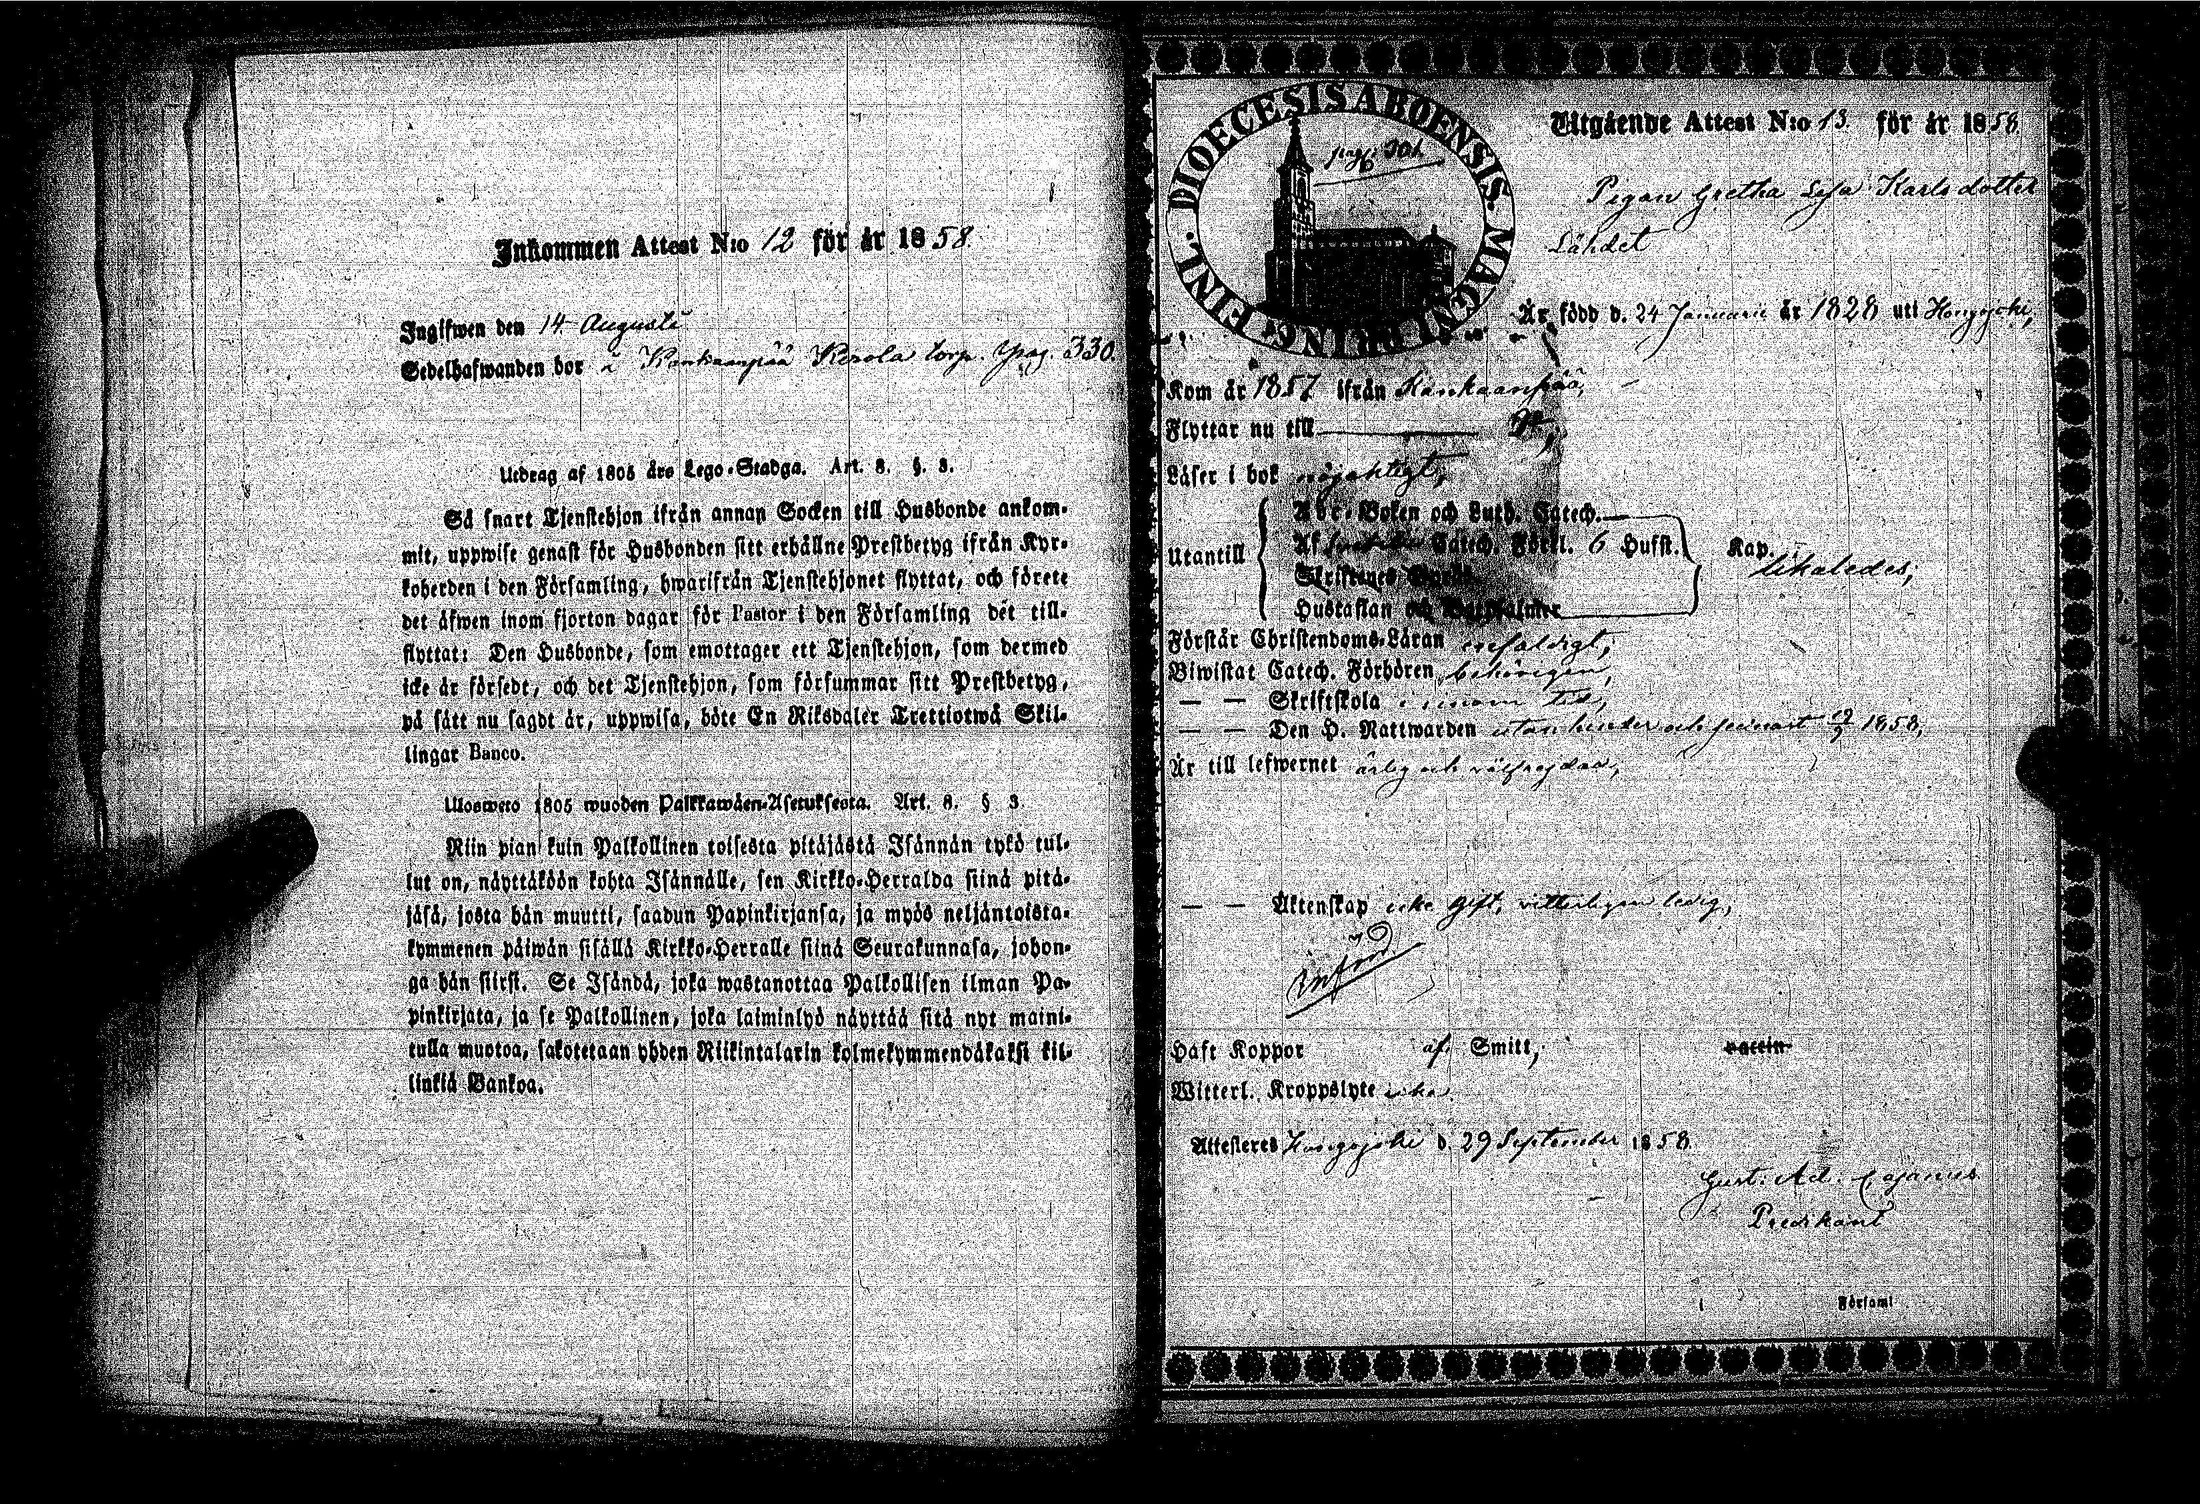 Inkommen Attest N:o 12 för år 1858.
Ingifwen den 14 Augusti
Sedelhafwanden bor i Kankaanpää Kerola torp. pag. 330.
Utdrag af 1805 års Lego-Stadga. Art. 8. §. 3.
Så snart Tjenstehjon ifrån annan Socken till Husbonde ankom-
mit, uppwise genast för Husbonden sitt erhållne Prestbetyg ifrån Kyr-
koherden i den Församling, hwarifrån Tjenstehjonet flyttat, och förete
det äfwen inom fjorton dagar för Pastor i den Församling det till-
flyttat: Den Husbonde, som emottager ett Tjenstehjon, som dermed
icke är försedt, och det Tjenstehjon, som försummar sitt Prestbetyg,
på sätt nu sagdt är, uppwisa, böte En Riksdaler Trettiotwå Skil-
lingar Banco.
Ulosweto 1805 wuoden Palkkawäen-Asetuksesta. Art. 8. § 3.
Niin pian kuin Palkollinen toisesta pitäjästä Isännän tykö tul-
lut on, näyttäköön kohta Isännälle, sen Kirkko-Herralda siinä pitä-
jäsä, josta hän muutti, saadun Papinkirjansa, ja myös neljäntoista-
kymmenen päiwän sisällä Kirkko-Herralle siinä Seurakunnasa, johon-
ga hän siirsi. Se Isändä, joka wastanottaa Palkollisen ilman Pa-
pinkirjata, ja se Palkollinen, joka laiminlyö näyttää sitä nyt maini-
tulla muotoa, sakotetaan yhden Riikintalarin kolmekymmendäkaksi kil-
linkiä Bankoa.
DIOECESIS ABOENSIS. MAGNI PRINC. FINL.
pag. 301.
Utgående Attest N:o 13. för år 1858.
Pigan Gretha Lisa Karlsdotter
Lähdet
Är född d. 24 Januarii år 1828 uti Hongojoki,
Kom år 1857 ifrån Kankaanpää,
Flyttar nu till
Läser i bok nöjaktigt,
Utantill
Abc-Boken och Luth. Catech.
Af Catech. Förkl. 6 Hufst. Kap.
likaledes,
Skriftenes Språk
Hustaflan och Botpsalmer
Förstår Christendoms-Läran enfaldigt,
Biwistat Catech. Förhören behörigen,
— — Skriftskola i sinom tid,
— — Den H. Nattwarden utan hinder och senast 1858,
Är till lefwernet ärlig och välfrejdad,
— — Äktenskap icke gift, vitterligen ledig,
Haft Koppor af Smitt, vaccin
Witterl. Kroppslyte icke
Attesteres Hongojoki d. 29 September 1858.
Gust. Ad. Cajanus
Predikant
i Församl